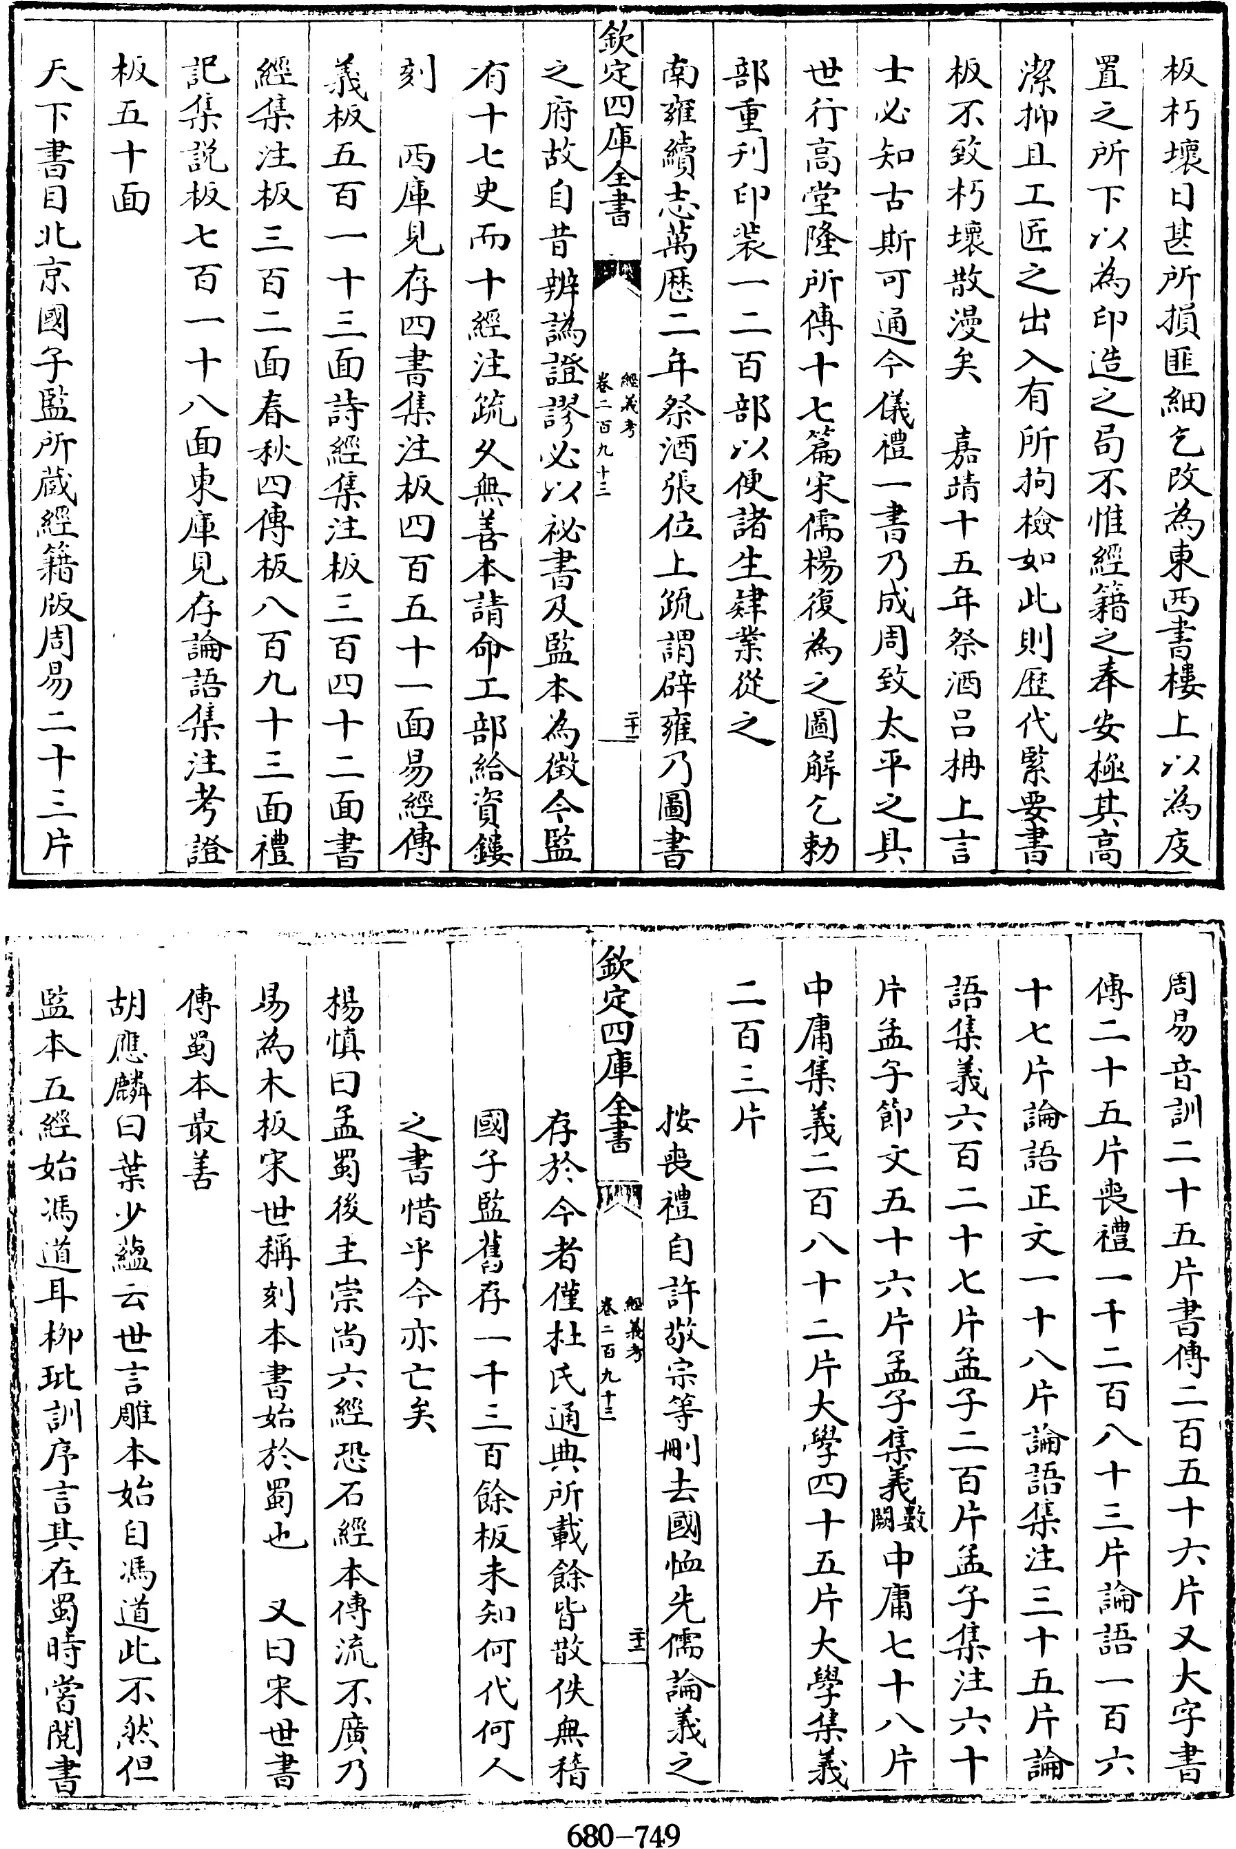 板朽壞日甚所損匪細乞改為東西書樓上以為庋
置之所下以為印造之局不惟經籍之奉安極其高
潔抑且工匠之出入有所拘檢如此則歴代緊要書
板不致朽壞散漫矣　嘉靖十五年祭酒吕柟上言
士必知古斯可通今儀禮一書乃成周致太平之具
世行高堂隆所傳十七篇宋儒楊復為之圖解乞勅
部重刋印裝一二百部以便諸生肄業從之
南雍續志萬歴二年祭酒張位上疏謂辟雍乃圖書
欽定四庫全書
經義考
卷二百九十三
二十一
之府故自昔辨譌證謬必以祕書及監本為徴今監
有十七史而十經注疏久無善本請命工部給資鏤
刻　西庫見存四書集注板四百五十一面易經傳
義板五百一十三面詩經集注板三百四十二面書
經集注板三百二面春秋四傳板八百九十三面禮
記集説板七百一十八面東庫見存論語集注考證
板五十面
天下書目北京國子監所蔵經籍版周易二十三片
周易音訓二十五片書傳二百五十六片又大字書
傳二十五片喪禮一千二百八十三片論語一百六
十七片論語正文一十八片論語集注三十五片論
語集義六百二十七片孟子二百片孟子集注六十
片孟子節文五十六片孟子集義數闕中庸七十八片
中庸集義二百八十二片大學四十五片大學集義
二百三片
按喪禮自許敬宗等刪去國恤先儒論義之
欽定四庫全書
經義考
卷二百九十三
二十二
存於今者僅杜氏通典所載餘皆散佚無稽
國子監舊存一千三百餘板未知何代何人
之書惜乎今亦亡矣
楊慎曰孟蜀後主崇尚六經恐石經本傳流不廣乃
易為木板宋世稱刻本書始於蜀也　又曰宋世書
傳蜀本最善
胡應麟曰葉少藴云世言雕本始自馮道此不然但
監本五經始馮道耳柳玭訓序言其在蜀時嘗閲書
680-749